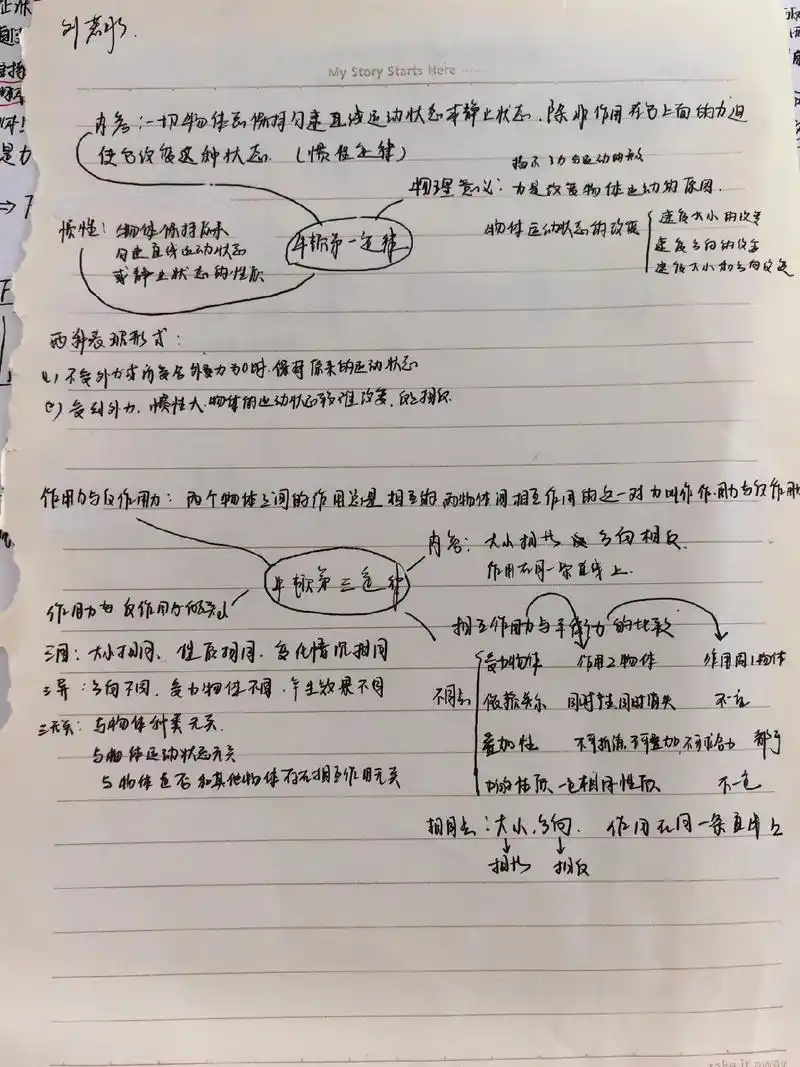 My Story Starts Here ······
内容：一切物体总保持匀速直线运动状态或静止状态，除非作用在它上面的力迫
使它改变这种状态.（惯性定律）
揭示了力与运动的关系
物理意义：力是改变物体运动的原因.
惯性：物体保持原来
匀速直线运动状态
或静止状态的性质
牛顿第一定律
物体运动状态的改变
速度大小的改变
速度方向的改变
速度大小和方向改变
两种表现形式：
(1) 不受外力或所受合外力为0时，保持原来的运动状态
(2) 受到外力，惯性大，物体的运动状态较难改变，反之相反.
作用力与反作用力：两个物体之间的作用总是相互的，两物体间相互作用的这一对力叫作作用力与反作用
内容：大小相等 方向相反
作用在同一条直线上.
牛顿第三定律
作用力与反作用力的
相互作用力与平衡力的比较
三同：大小相同、性质相同、变化情况相同
三异：方向不同、受力物体不同、产生效果不同
三无关：与物体种类无关.
与物体运动状态无关
与物体是否和其他物体存在相互作用无关
不同点
受力物体 作用2物体 作用同1物体
依赖关系 同时产生，同时消失 不一定
叠加性 不可抵消，不可叠加，不可求合力 都可
力的性质 一定相同性质 不一定
相同点：大小，方向. 作用在同一条直线上
相等 相反
take it away